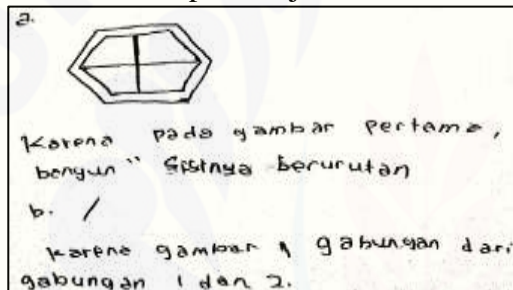 a.
Karena pada gambar pertama,
bangun" sisinya berurutan
b. /
Karena gambar 1 gabungan dari
gabungan 1 dan 2.